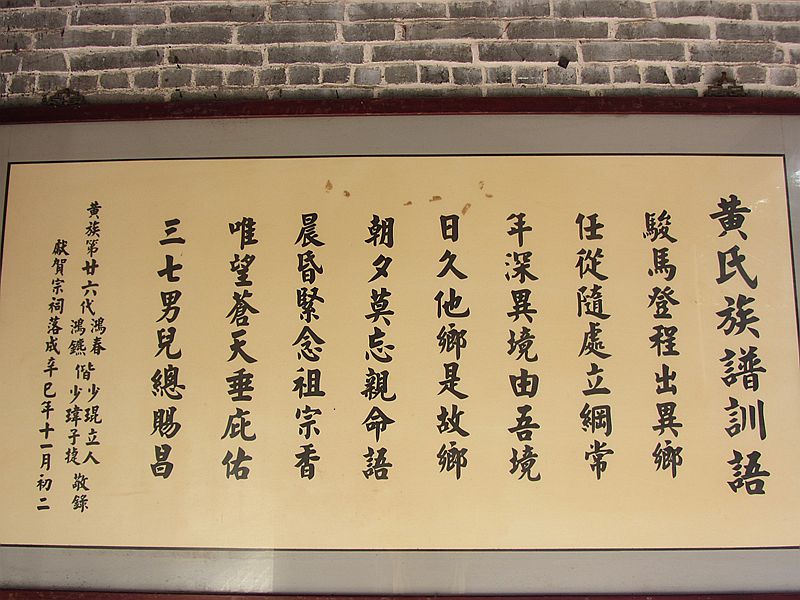 黃氏族譜訓語
駿馬登程出異鄉
任從隨處立綱常
年深異境由吾境
日久他鄉是故鄉
朝夕莫忘親命語
晨昏緊念祖宗香
唯望蒼天垂庇佑
三七男兒總賜昌
黃族第廿六代鴻春鴻鑣偕少琨少瑋立人子捷敬錄
獻賀宗祠落成辛巳年十一月初二